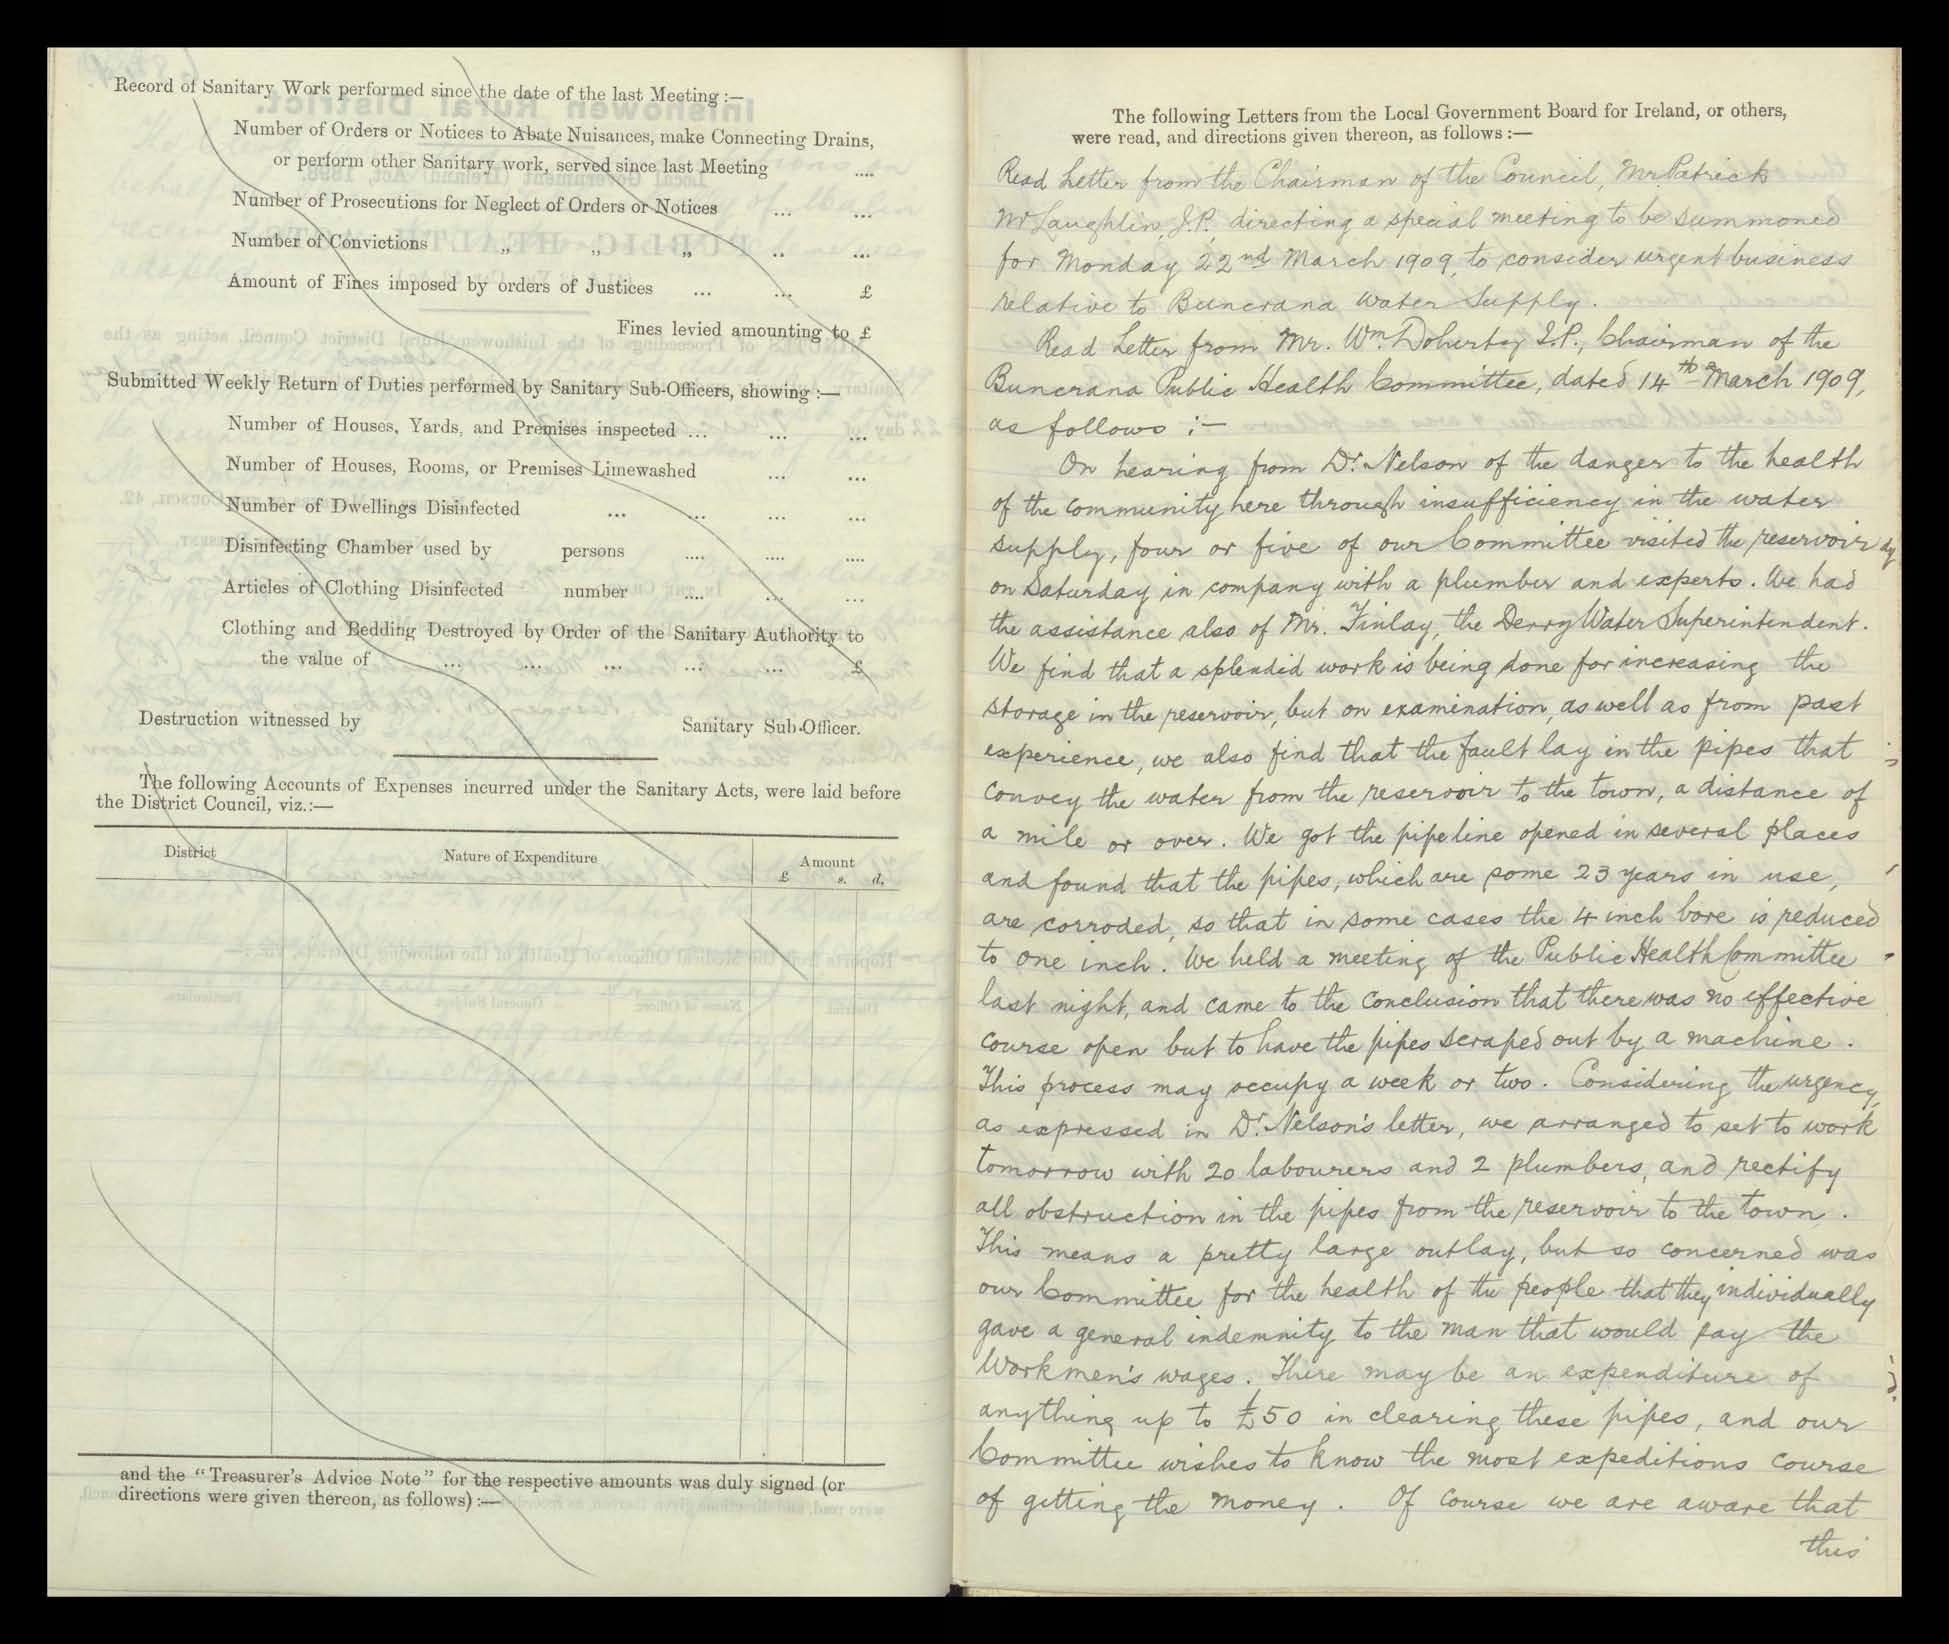 Record of Sanitary Work performed since the date of the last Meeting :—
Number of Orders or Notices to Abate Nuisances, make Connecting Drains,
or perform other Sanitary work, served since last Meeting ....
Number of Prosecutions for Neglect of Orders or Notices ... ...
Number of Convictions „ „ „ .. ...
Amount of Fines imposed by orders of Justices ... ... £
Fines levied amounting to £
Submitted Weekly Return of Duties performed by Sanitary Sub-Officers, showing :—
Number of Houses, Yards, and Premises inspected ... ... ...
Number of Houses, Rooms, or Premises Limewashed ... ...
Number of Dwellings Disinfected ... ... ... ...
Disinfecting Chamber used by persons .... .... ....
Articles of Clothing Disinfected number .... ... ...
Clothing and Bedding Destroyed by Order of the Sanitary Authority to
the value of ... ... ... ... ... £
Destruction witnessed by Sanitary Sub-Officer.
The following Accounts of Expenses incurred under the Sanitary Acts, were laid before
the District Council, viz.:—
District Nature of Expenditure Amount
£ s. d.
and the "Treasurer's Advice Note" for the respective amounts was duly signed (or
directions were given thereon, as follows) :—
The following Letters from the Local Government Board for Ireland, or others,
were read, and directions given thereon, as follows :—
Read Letter from the Chairman of the Council, Mr. Patrick
McLaughlin, J.P. directing a special meeting to be summoned
for Monday 22nd March 1909, to consider urgent business
relative to Buncrana Water Supply.
Read Letter from Mr. Wm. Doherty J.P., Chairman of the
Buncrana Public Health Committee, dated 14th March 1909,
as follows :—
On hearing from Dr. Nelson of the danger to the health
of the community here through insufficiency in the water
supply, four or five of our Committee visited the reservoir
on Saturday in company with a plumber and experts. We had
the assistance also of Mr. Finlay, the Derry Water Superintendent.
We find that a splendid work is being done for increasing the
storage in the reservoir, but on examination, as well as from past
experience, we also find that the fault lay in the pipes that
convey the water from the reservoir to the town, a distance of
a mile or over. We got the pipe line opened in several places
and found that the pipes, which are some 23 years in use,
are corroded, so that in some cases the 4 inch bore is reduced
to one inch. We held a meeting of the Public Health Committee
last night, and came to the conclusion that there was no effective
course open but to have the pipes scraped out by a machine.
This process may occupy a week or two. Considering the urgency,
as expressed in Dr. Nelson's letter, we arranged to set to work
tomorrow with 20 labourers and 2 plumbers, and rectify
all obstruction in the pipes from the reservoir to the town.
This means a pretty large outlay, but so concerned was
our Committee for the health of the people that they individually
gave a general indemnity to the man that would pay the
Workmen's wages. There may be an expenditure of
anything up to £50 in clearing these pipes, and our
Committee wishes to know the most expeditions course
of getting the money. Of course we are aware that
this